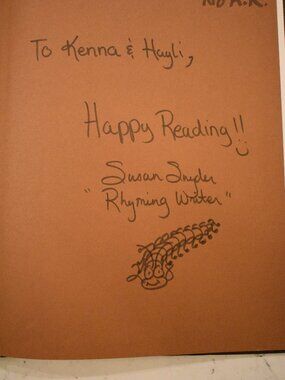 No A.R.
To Kenna & Hayli,
Happy Reading!!
Susan Snyder
"Rhyming Writer"